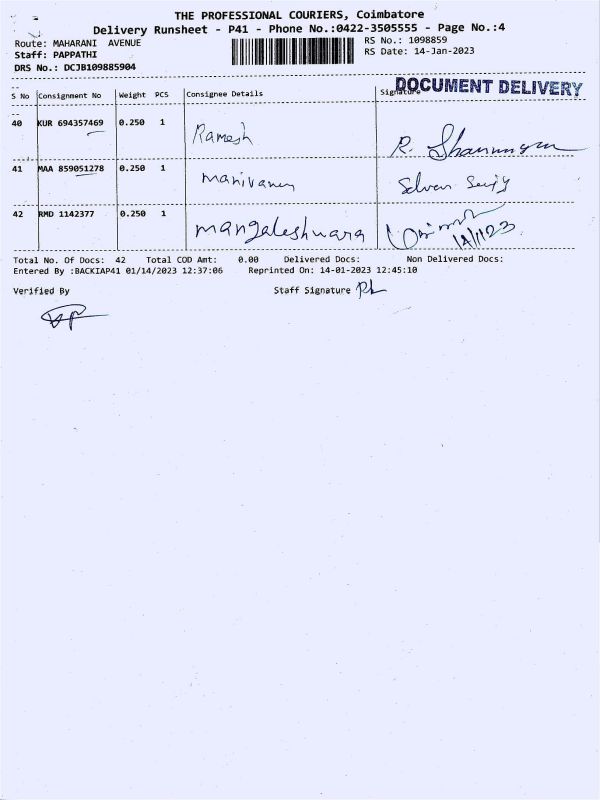 THE PROFESSIONAL COURIERS, Coimbatore
Delivery Runsheet - P41 - Phone No.:0422-3505555 - Page No.:4
Route: MAHARANI AVENUE RS No.: 1098859
Staff: PAPPATHI RS Date: 14-Jan-2023
DRS No.: DCJB109885904
DOCUMENT DELIVERY
S No Consignment No Weight PCS Consignee Details Signature
40 KUR 694357469 0.250 1 Ramesh R.
41 MAA 859051278 0.250 1 Manivannan Selvan
42 RMD 1142377 0.250 1 mangaleshwara 14/1/23
Total No. Of Docs: 42 Total COD Amt: 0.00 Delivered Docs: Non Delivered Docs:
Entered By :BACKIAP41 01/14/2023 12:37:06 Reprinted On: 14-01-2023 12:45:10
Verified By Staff Signature